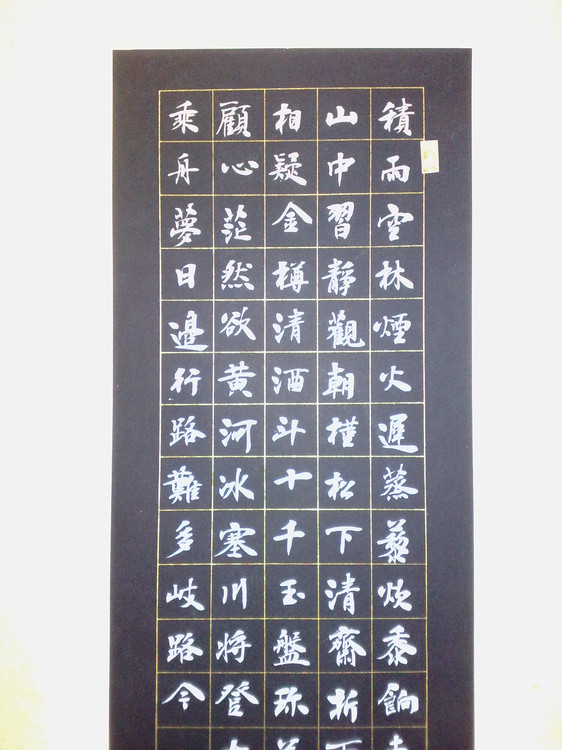 積雨空林煙火遲蒸藜炊黍餉
山中習靜觀朝槿松下清齋折
相疑金樽清酒斗十千玉盤珍
顧心茫然欲黄河冰塞川將登
乘舟夢日邊行路難多岐路今